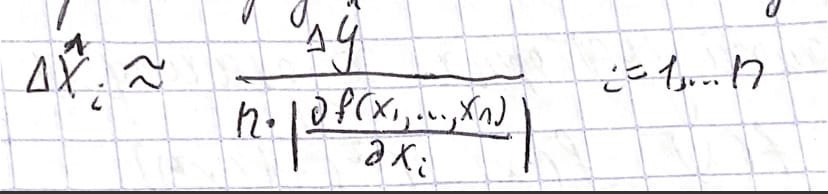 Δx̂ᵢ ≈ Δŷ / (n · |∂f(x₁,...,xₙ) / ∂xᵢ|)   i=1,...n